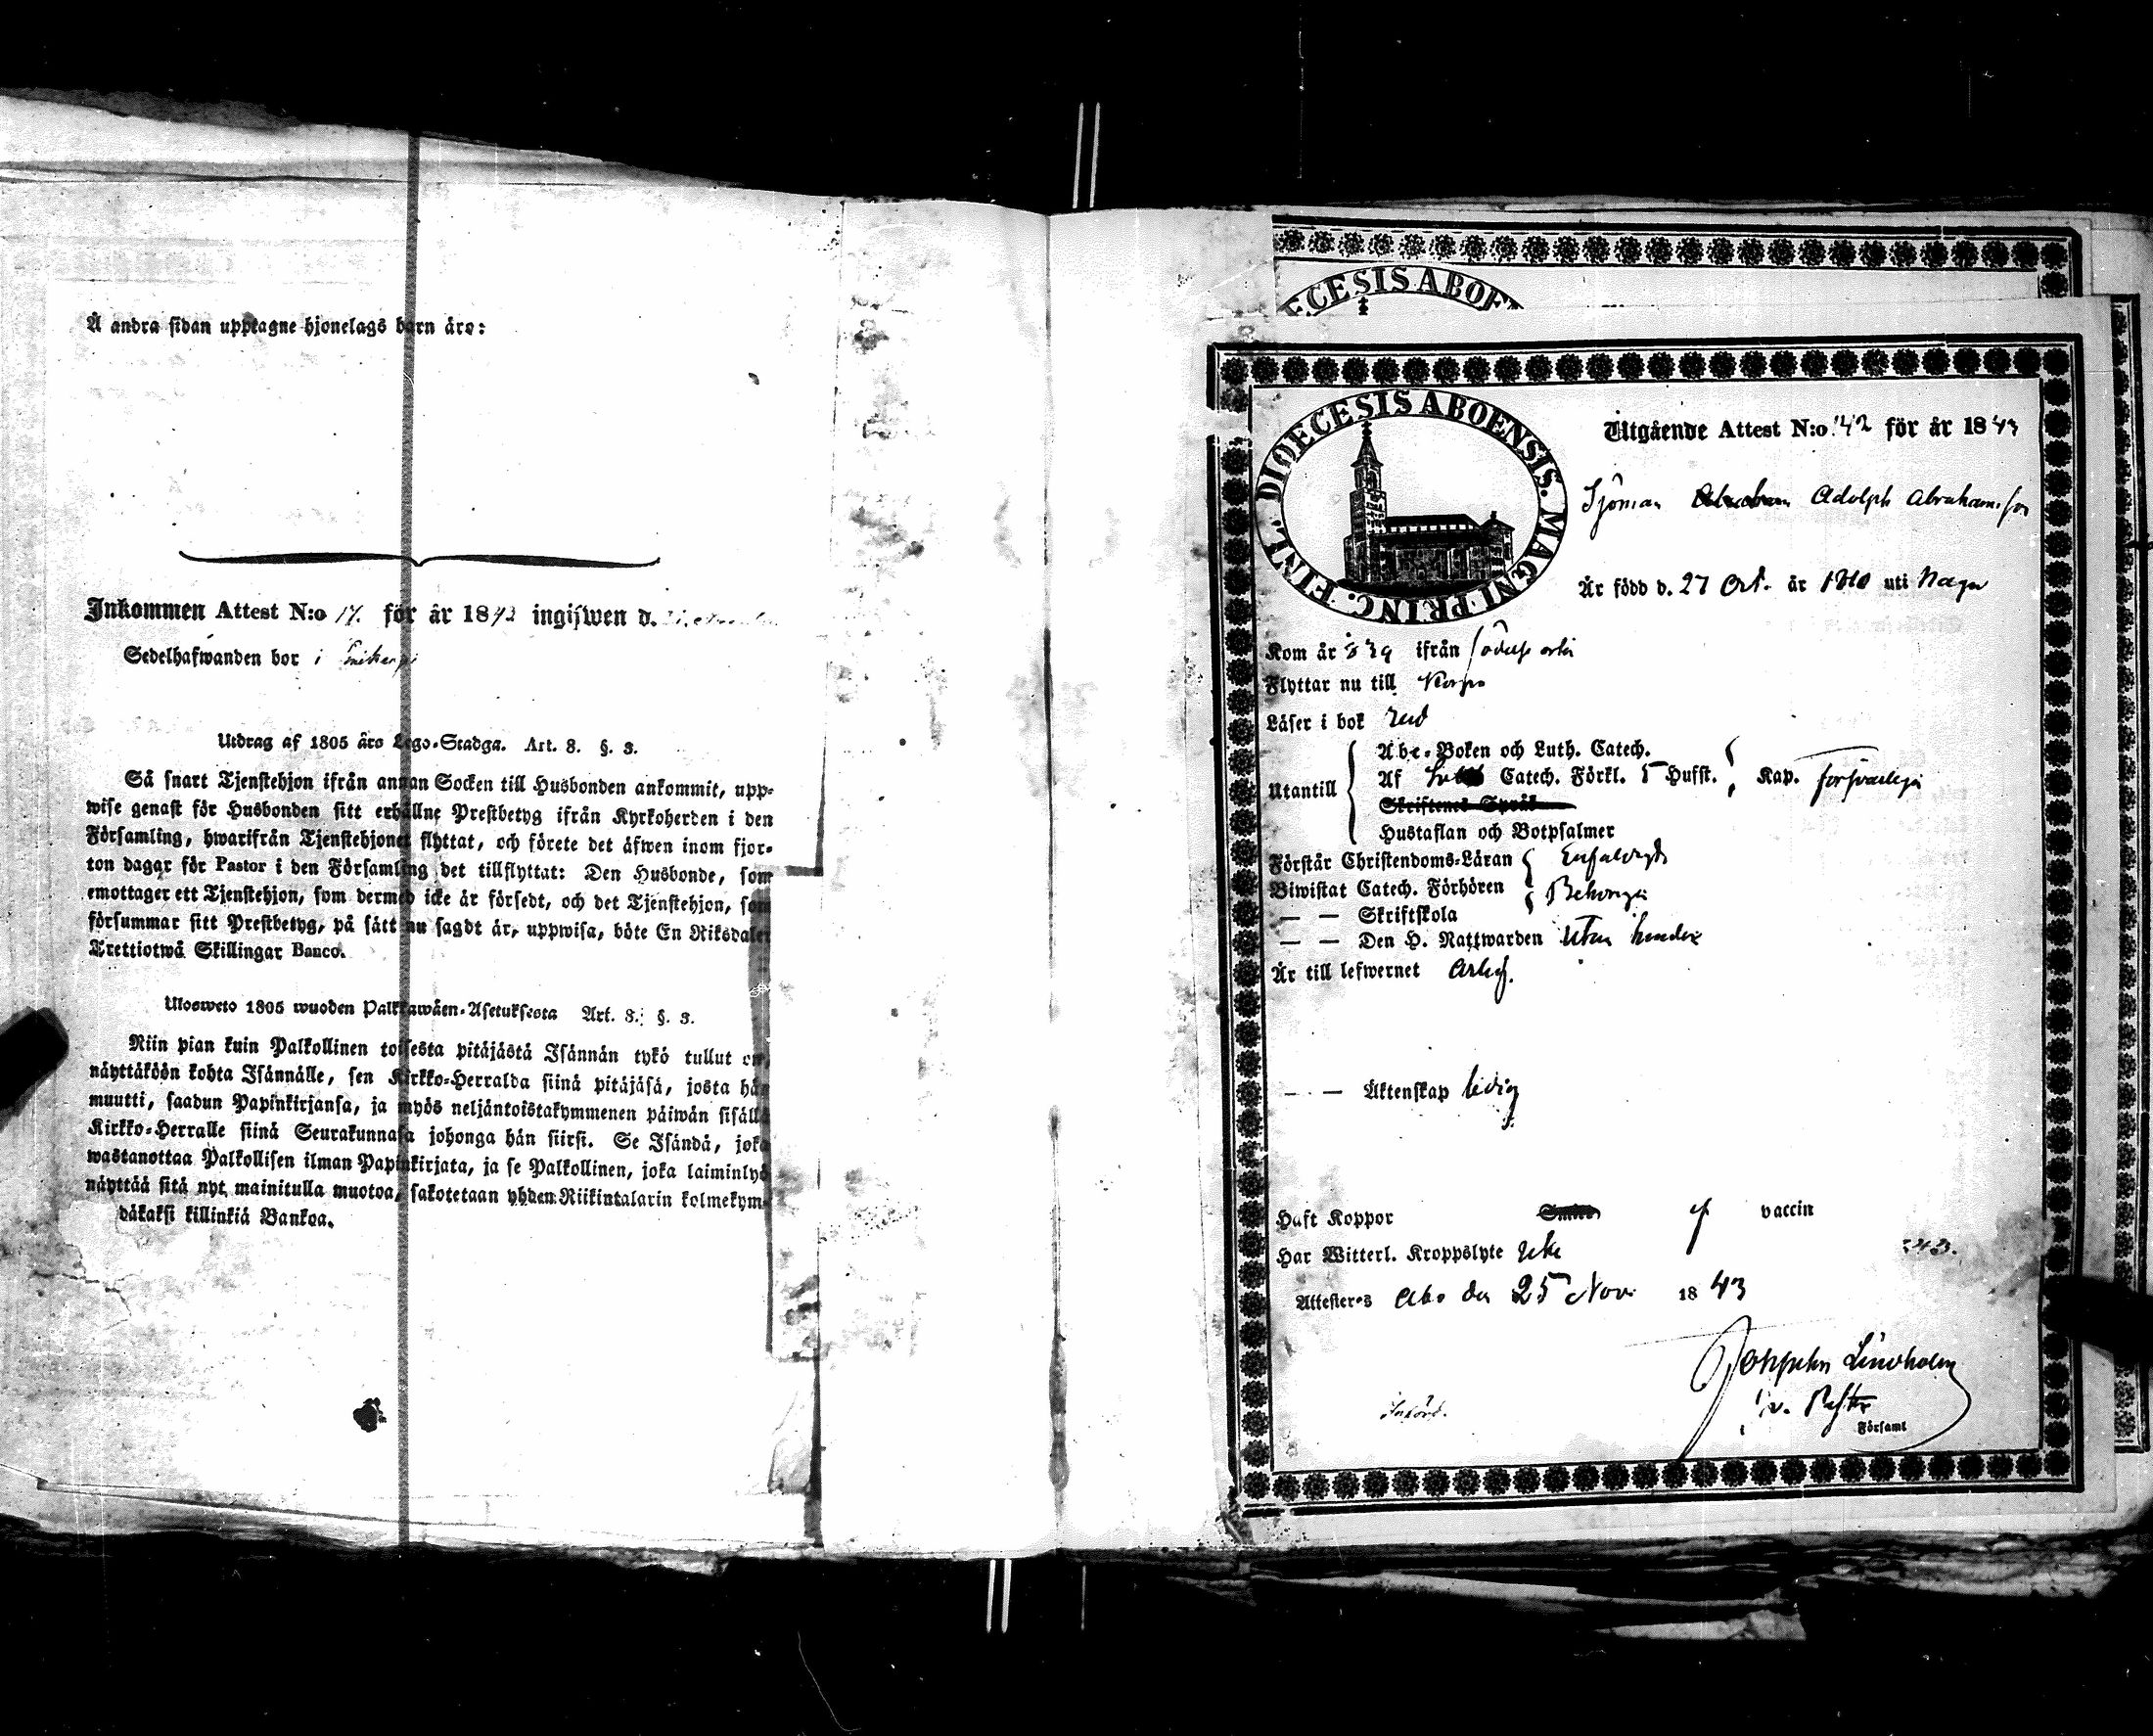 Å andra sidan upptagne hjonelags barn äro:
Inkommen Attest N:o 17. för år 1843 ingifwen d.
Sedelhafwanden bor i
Utdrag af 1805 års Lego-Stadga. Art. 8. §. 3.
Så snart Tjenstehjon ifrån annan Socken till Husbonden ankommit, upp-
wise genast för Husbonden sitt erhållne Prestbetyg ifrån Kyrkoherden i den
Församling, hwarifrån Tjenstehjonet flyttat, och förete det äfwen inom fjor-
ton dagar för Pastor i den Församling det tillflyttat: Den Husbonde, som
emottager ett Tjenstehjon, som dermed icke är försedt, och det Tjenstehjon, som
försummar sitt Prestbetyg, på sätt nu sagdt är, uppwisa, böte En Riksdaler
Trettiotwå Skillingar Banco.
Ulosweto 1805 wuoden Palkkawäen-Asetuksesta Art. 8. §. 3.
Niin pian kuin Palkollinen toisesta pitäjästä Isännän tykö tullut on,
näyttäköön kohta Isännälle, sen Kirkko-Herralda siinä pitäjäsä, josta hän
muutti, saadun Papinkirjansa, ja myös neljäntoistakymmenen päiwän sisällä
Kirkko-Herralle siinä Seurakunnasa johonga hän siirsi. Se Isändä, joka
wastanottaa Palkollisen ilman Papinkirjata, ja se Palkollinen, joka laiminlyö
näyttää sitä nyt mainitulla muotoa, sakotetaan yhden Riikintalarin kolmekym-
däkaksi killinkiä Bankoa.
ECESIS ABOEN
DIOECESIS ABOENSIS. MAGNI PRINC. FINL.
Utgående Attest N:o 42 för år 1843
Sjöman Adolph Abrahamsson
Är född d. 27 Oct. år 1810 uti Nagu
Kom år 839 ifrån födelse orten
Flyttar nu till Korpo
Läser i bok
Utantill
Abc-Boken och Luth. Catech.
Af Catech. Förkl. 5 Hufst. Kap. försvarligen
Skriftenes Språk
Hustaflan och Botpsalmer
Förstår Christendoms-Läran Enfaldigt
Biwistat Catech. Förhören Behörigen
— — Skriftskola
— — Den H. Nattwarden Utan hinder
Är till lefwernet Ärlig.
— — Äktenskap ledig
Haft Koppor ef vaccin
Har Witterl. Kroppslyte Icke
243.
Attesteres Åbo den 25 Nov. 1843
Josephn Lindholm
v. Pastor
Införd.
Församl